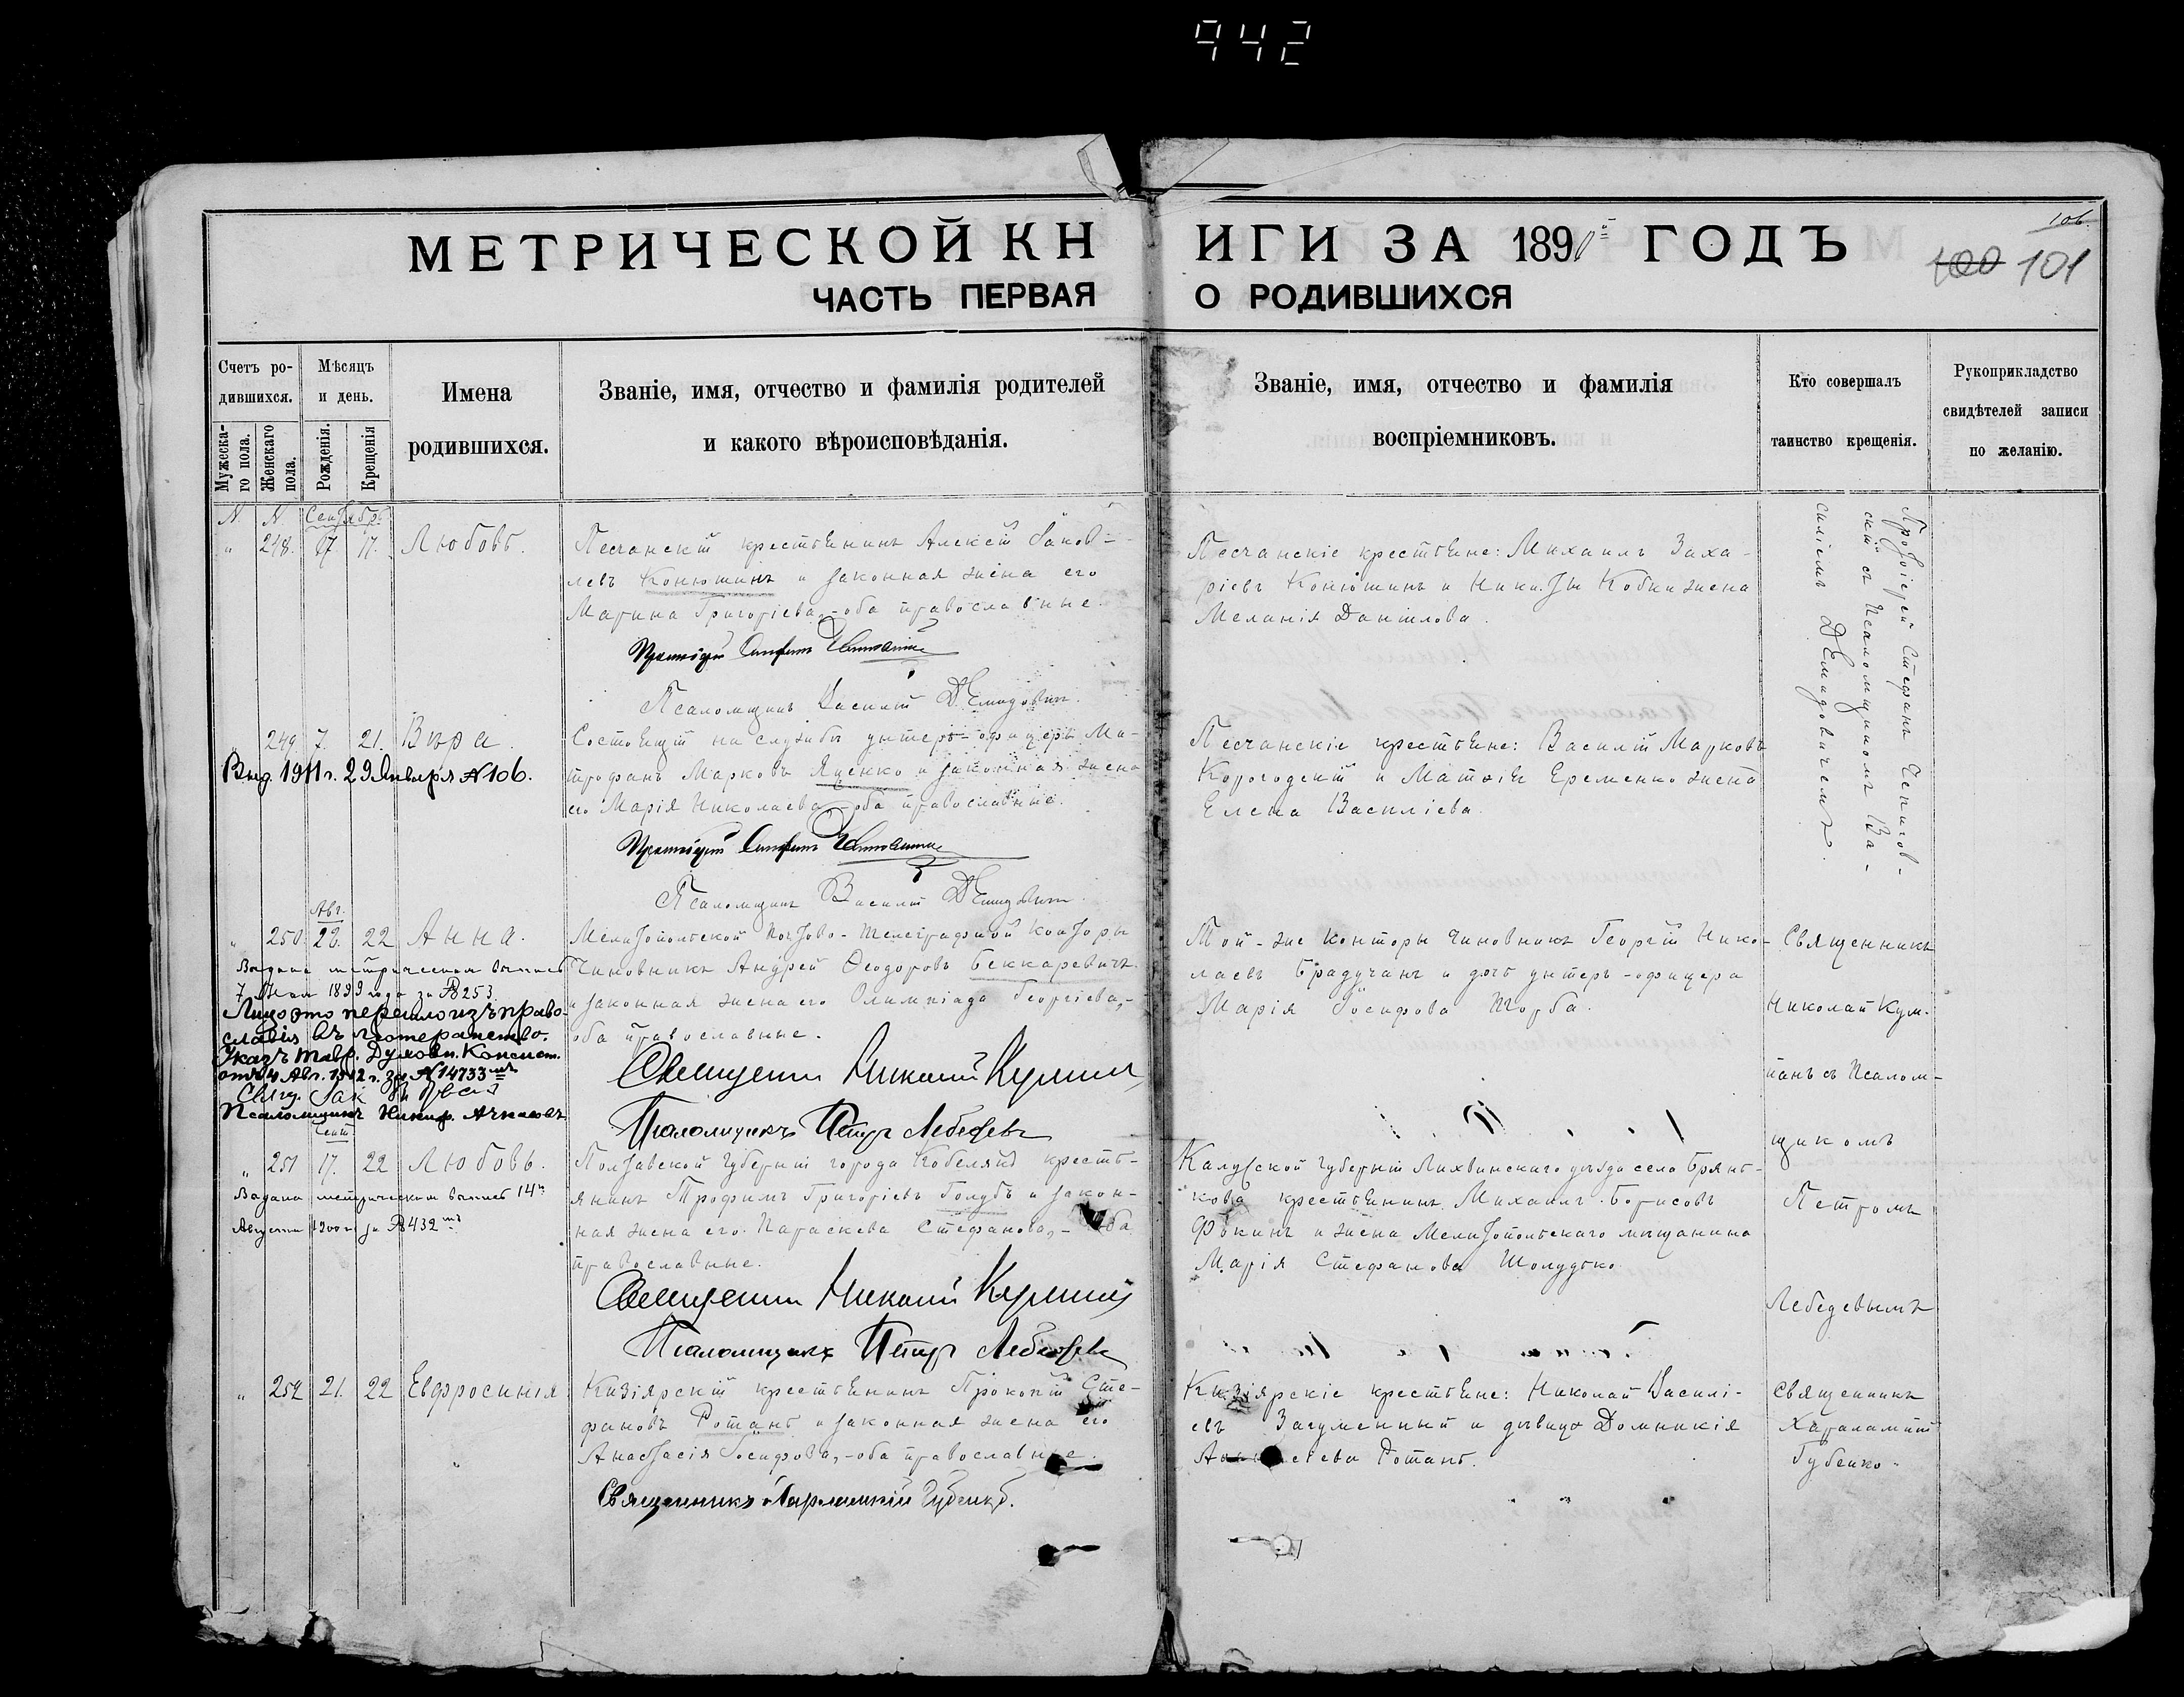 942
106
МЕТРИЧЕСКОЙ КНИГИ ЗА 1891й ГОДЪ
100 101
ЧАСТЬ ПЕРВАЯ О РОДИВШИХСЯ
Счетъ ро-
дившихся.
Мужеска-
го пола.
Женскаго
пола.
Мѣсяцъ
и день.
Рожденія.
Крещенія
Имена
родившихся.
Званіе, имя, отчество и фамилія родителей
и какого вѣроисповѣданія.
Званіе, имя, отчество и фамилія
воспріемниковъ.
Кто совершалъ
таинство крещенія.
Рукоприкладство
свидѣтелей записи
по желанію.
N. N. Сентябрь
" 248. 17. Любовь.
Песчанскій крестьянинъ Алексій Іаков-
левъ Конюшинъ и законная жена его
Марина Григоріева,-оба православные.
Протоіерей Стефанъ
Псаломщикъ Василій Демидовичъ.
Песчанскіе крестьяне: Михаилъ Заха-
ріевъ Конюшинъ и Никиты Кобки жена
Меланія Даніилова.
Протоіерей Стефанъ Чернигов-
скій съ Псаломщикомъ Ва-
силіемъ Демидовичемъ.
" 249 7. 21. Вѣра.
Выд. 1911 г. 29 Января № 106.
Состоящій на службѣ унтеръ-офицеръ Ми-
трофанъ Марковъ Яценко и законная жена
его Марія Николаева,-оба православные.
Протоіерей Стефанъ
Псаломщикъ Василій Демидовичъ.
Песчанскіе крестьяне: Василій Марковъ
Корогодскій и Матѳія Еременко жена
Елена Василіева.
Авг.
" 250. 22. 22 Анна.
Выдана метрическая выпись
7 Мая 1899 года за № 253
Лицо это перешло изъ право-
славія въ лютеранство.
Указъ Тавр. Духовн. Консист.
отъ 4 Авг. 1912 г. за № 14733мъ
Свящ.
Псаломщикъ Никиф.
Мелитопольской Почтово-Телеграфной Конторы
Чиновникъ Андрей Ѳеодоровъ Беккаревичъ
и законная жена его Олимпіада Георгіева,-
оба православные.
Священникъ Николай
Псаломщикъ Петръ Лебедевъ
Той-же Конторы Чиновникъ Георгій Нико-
лаевъ Брадучанъ и дочь унтеръ-офицера
Марія Іосифова Торба.
Священникъ
Николай
съ Псалом-
щикомъ
Петромъ
Лебедевымъ
Сент.
" 251 17. 22 Любовь.
Выдана метрическая выпись 14го
Августа 1900 г. за № 432мъ
Полтавской Губерніи города Кобелякъ кресть-
янинъ Трофимъ Григоріевъ Голубъ и закон-
ная жена его Параскева Стефанова,- оба
православные.
Священникъ Николай
Псаломщикъ Петръ Лебедевъ
Калужской Губерніи Лихвинскаго уѣзда села
крестьянинъ Михаилъ Борисовъ
и жена Мелитопольскаго мѣщанина
Марія Стефанова Шолудько.
" 252 21. 22 Евфросинія
Кизіярскій крестьянинъ Прокопій Сте-
фановъ Ротань и законная жена его
Анастасія Іосифова,-оба православные.
Священникъ Харалампій Губенко.
Кизіярскіе крестьяне: Николай Василі-
евъ Загуменный и дѣвица Домникія
Ротань.
Священникъ
Харалампій
Губенко.